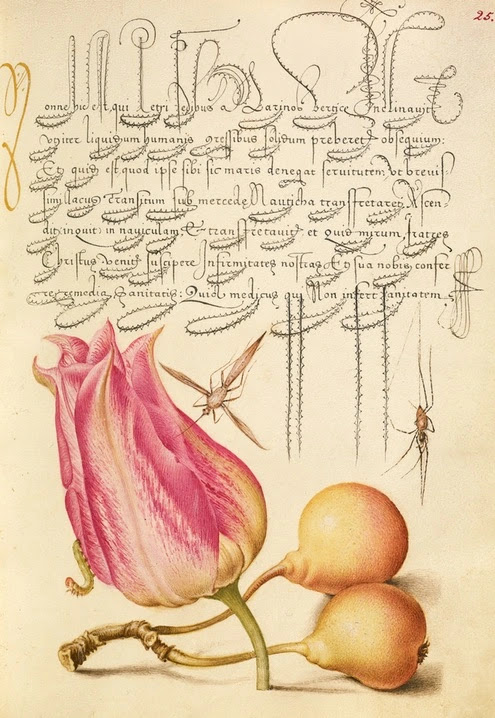 25.
onne hic est, qui Petri pedibus a Marinos vertice Inclinavit
Vt iter liquidum humanis gressibus solidum preberet obsequium:
Et quid est quod ipse sibi sic maris denegat servitutem: vt brevis
simi lacus transitum sub mercede Nauticha transfretaret. Ascen
dit, inquit, in naviculam: & transfretavit: et Quid mirum, fratres
Christus venit suscipere Infirmitates nostras Et sua nobis confer
re remedia Sanitatis: Quia medicus qui Non infert sanitatem